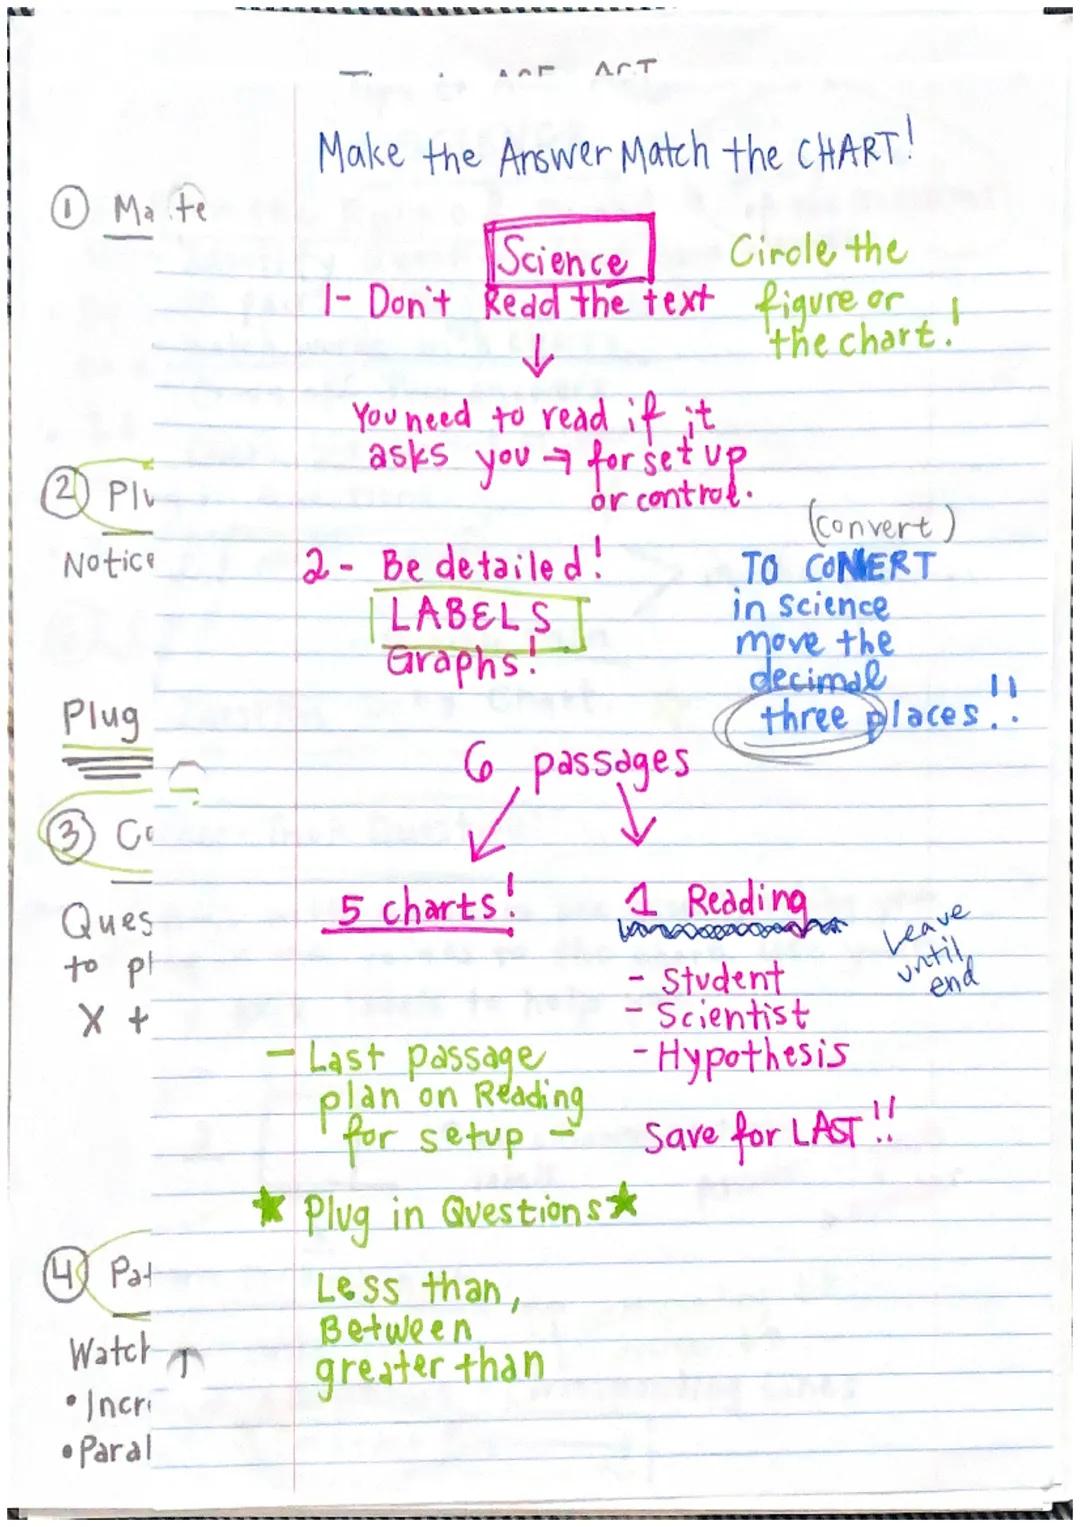 Make the Answer Match the CHART!
① Ma te
Science
Circle the
figure or
the chart!
1- Don't Read the text
↓
You need to read if it
asks you → for set up
or control.
② Plu
Notice
(convert)
TO CONVERT
in science
move the
decimal
three places!!
2- Be detailed!
LABELS
Graphs!
Plug
6 passages
③ Co
Ques
to pl
X +
5 charts!
1 Reading
Leave
until
end
- Student
- Scientist
- Hypothesis
- Last passage
plan on Reading
for setup -
Save for LAST!!
★ Plug in Questions ★
④ Pat
Less than,
Between
greater than
Watch
• Incr
• Paral